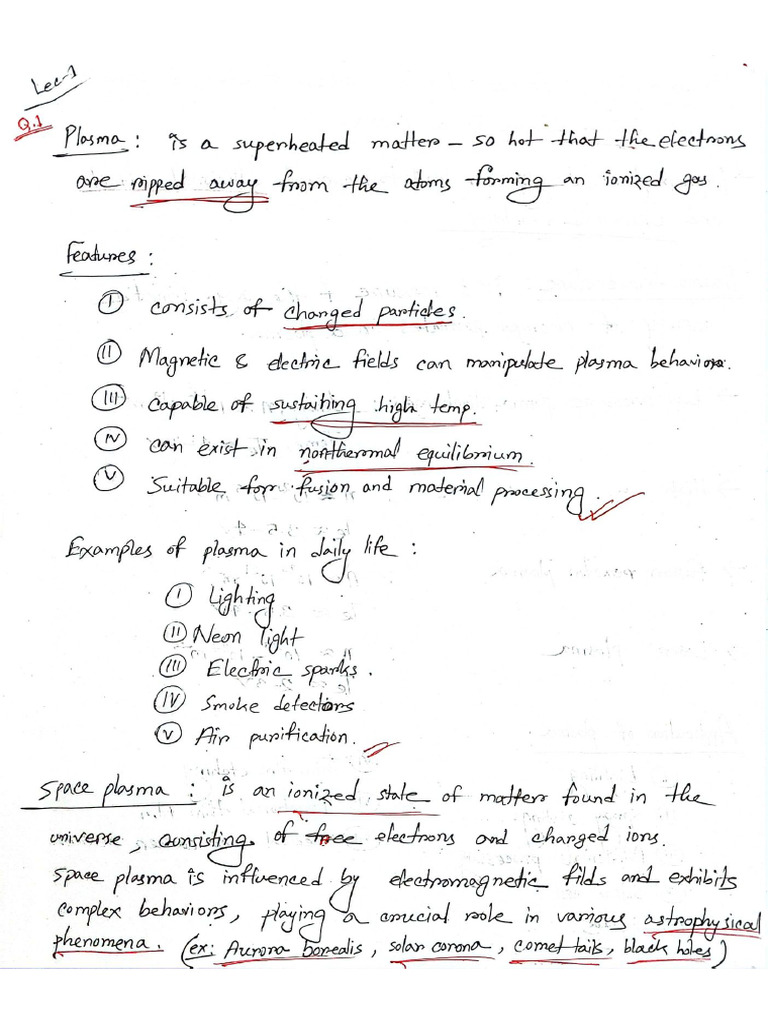 Lec-1
Q.1
Plasma : is a superheated matter – so hot that the electrons
are ripped away from the atoms forming an ionized gas.
Features :
I consists of charged particles.
II Magnetic & electric fields can manipulate plasma behavior.
III Capable of sustaining high temp.
IV can exist in nonthermal equilibrium.
V Suitable for fusion and material processing.
Examples of plasma in daily life :
I Lighting
II Neon light
III Electric sparks.
IV Smoke detectors
V Air purification.
Space plasma : is an ionized state of matter found in the
universe, consisting of free electrons and charged ions.
Space plasma is influenced by electromagnetic filds and exhibits
complex behaviors, playing a crucial role in various astrophysical
phenomena. (ex: Aurora borealis, solar corona, comet tails, black holes)